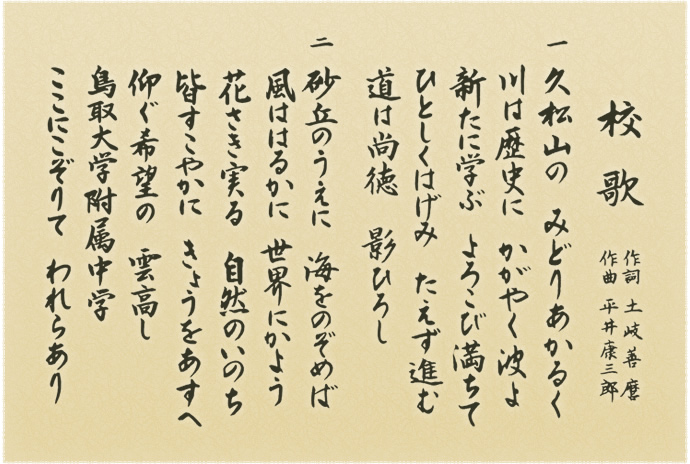 校歌
作詞 土岐善麿
作曲 平井康三郎
一 久松山の みどりあかるく
川は歴史に かがやく波よ
新たに学ぶ よろこび満ちて
ひとしくはげみ たえず進む
道は尚徳 影ひろし
二 砂丘のうえに 海をのぞめば
風ははるかに 世界にかよう
花さき実る 自然のいのち
皆すこやかに きょうをあすへ
仰ぐ希望の 雲高し
鳥取大学附属中学
ここにこぞりて われらあり